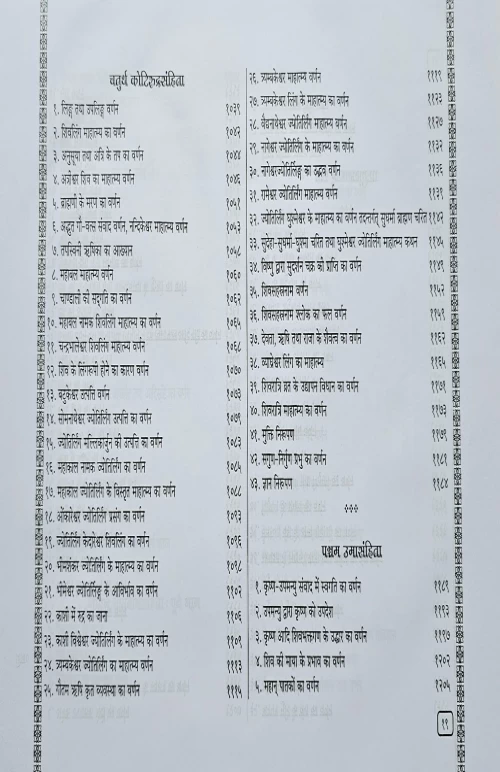 चतुर्थ कोटिरुद्रसंहिता
१. लिङ्ग तथा उपलिङ्ग वर्णन १०३९
२. शिवलिंग माहात्म्य का वर्णन १०४२
३. अनुसूया तथा अत्रि के तप का वर्णन १०४४
४. अत्रीश्वर शिव का माहात्म्य वर्णन १०४६
५. ब्राह्मणी के मरण का वर्णन १०५१
६. अद्भुत गौ-वत्स संवाद वर्णन, नन्दिकेश्वर माहात्म्य वर्णन १०५३
७. तपस्विनी ऋषिका का आख्यान १०५८
८. महाबल माहात्म्य वर्णन १०६०
९. चाण्डाली की सद्गति का वर्णन १०६२
१०. महाबल नामक शिवलिंग माहात्म्य का वर्णन १०६५
११. चन्द्रभालेश्वर शिवलिंग माहात्म्य वर्णन १०६८
१२. शिव के लिंगरूपी होने का कारण वर्णन १०७०
१३. बटुकेश्वर उत्पत्ति वर्णन १०७३
१४. सोमनाथेश्वर ज्योतिर्लिंग उत्पत्ति का वर्णन १०७९
१५. ज्योतिर्लिंग मल्लिकार्जुन की उत्पत्ति का वर्णन १०८३
१६. महाकाल नामक ज्योतिर्लिंग का वर्णन १०८५
१७. महाकाल ज्योतिर्लिंग के विस्तृत माहात्म्य का वर्णन १०८८
१८. ओंकारेश्वर ज्योतिर्लिंग प्रसंग का वर्णन १०९३
१९. ज्योतिर्लिंग केदारेश्वर शिवलिंग का वर्णन १०९६
२०. भीमशंकर ज्योतिर्लिंग के माहात्म्य का वर्णन १०९८
२१. भीमेश्वर ज्योतिर्लिङ्ग के आविर्भाव का वर्णन ११०२
२२. काशी में रुद्र का जाना ११०६
२३. काशी विश्वेश्वर ज्योतिर्लिंग के माहात्म्य का वर्णन ११०९
२४. त्र्यम्बकेश्वर ज्योतिर्लिंग का माहात्म्य वर्णन १११३
२५. गौतम ऋषि कृत व्यवस्था का वर्णन १११५
२६. त्र्यम्बकेश्वर माहात्म्य वर्णन १११९
२७. त्र्यम्बकेश्वर लिंग के माहात्म्य का वर्णन ११२३
२८. वैद्यनाथेश्वर ज्योतिर्लिंग माहात्म्य वर्णन ११२७
२९. नागेश्वर ज्योतिर्लिंग के माहात्म्य का वर्णन ११३२
३०. नागेश्वरज्योतिर्लिङ्ग का उद्भव वर्णन ११३६
३१. रामेश्वर ज्योतिर्लिंग माहात्म्य वर्णन ११३९
३२. ज्योतिर्लिंग घुश्मेश्वर के माहात्म्य का वर्णन तदनन्तर सुधर्मा ब्राह्मण चरित ११४२
३३. सुदेहा-सुधर्मा-घुश्मा चरित तथा घुश्मेश्वर ज्योतिर्लिंग माहात्म्य कथन ११४५
३४. विष्णु द्वारा सुदर्शन चक्र की प्राप्ति का वर्णन ११४९
३५. शिवसहस्रनाम वर्णन ११५२
३६. शिवसहस्रनाम श्लोक का फल वर्णन ११५९
३७. देवता, ऋषि तथा राजा के शैवत्व का वर्णन ११६२
३८. व्याघ्रेश्वर लिंग का माहात्म्य ११६५
३९. शिवरात्रि व्रत के उद्यापन विधान का वर्णन ११७१
४०. शिवरात्रि माहात्म्य का वर्णन ११७३
४१. मुक्ति निरूपण ११७९
४२. सगुण-निर्गुण प्रभु का वर्णन ११८१
४३. ज्ञान निरूपण ११८४
पञ्चम उमासंहिता
१. कृष्ण-उपमन्यु संवाद में स्वगति का वर्णन ११८९
२. उपमन्यु द्वारा कृष्ण को उपदेश ११९३
३. कृष्ण आदि शिवभक्तगण के उद्धार का वर्णन ११९७
४. शिव की माया के प्रभाव का वर्णन १२०२
५. महान् पातकों का वर्णन १२०५
११